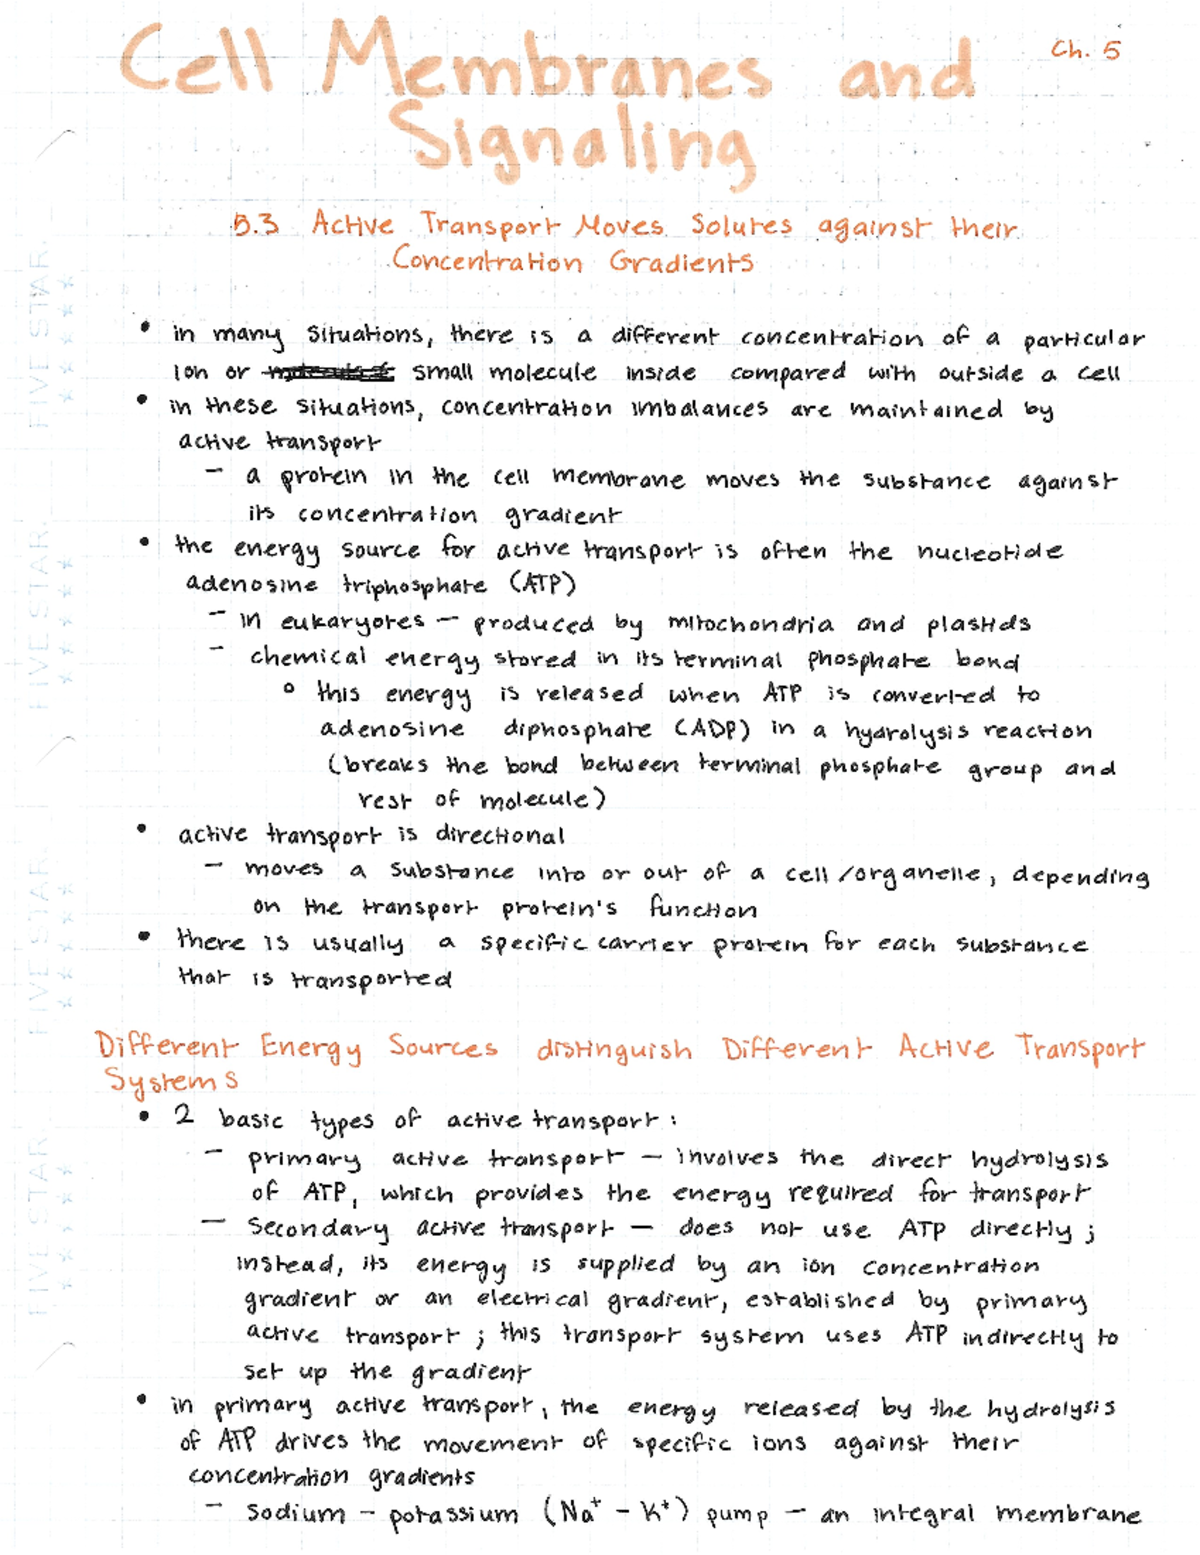 Ch. 5
Cell Membranes and
Signaling
5.3 Active Transport Moves Solutes against their
Concentration Gradients
• in many situations, there is a different concentration of a particular
ion or small molecule inside compared with outside a cell
• in these situations, concentration imbalances are maintained by
active transport
– a protein in the cell membrane moves the substance against
its concentration gradient
• the energy source for active transport is often the nucleotide
adenosine triphosphate (ATP)
– in eukaryotes – produced by mitochondria and plastids
– chemical energy stored in its terminal phosphate bond
° this energy is released when ATP is converted to
adenosine diphosphate (ADP) in a hydrolysis reaction
(breaks the bond between terminal phosphate group and
rest of molecule)
• active transport is directional
– moves a substance into or out of a cell/organelle, depending
on the transport protein's function
• there is usually a specific carrier protein for each substance
that is transported
Different Energy Sources distinguish Different Active Transport
Systems
• 2 basic types of active transport:
– primary active transport – involves the direct hydrolysis
of ATP, which provides the energy required for transport
– Secondary active transport – does not use ATP directly;
instead, its energy is supplied by an ion concentration
gradient or an electrical gradient, established by primary
active transport; this transport system uses ATP indirectly to
set up the gradient
• in primary active transport, the energy released by the hydrolysis
of ATP drives the movement of specific ions against their
concentration gradients
– Sodium – potassium (Na⁺ – K⁺) pump – an integral membrane
FIVE STAR
FIVE STAR
FIVE STAR
FIVE STAR